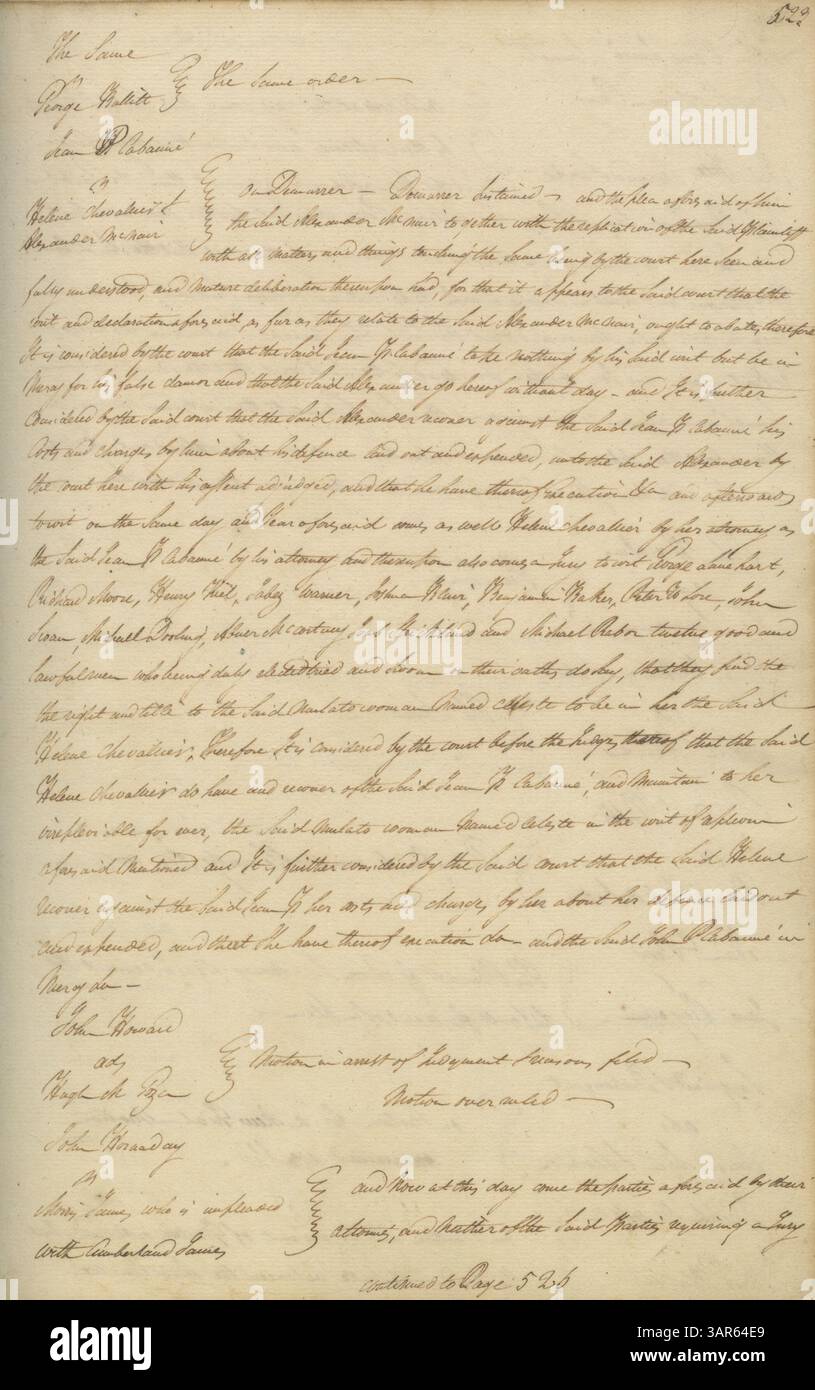 523
The Same
vs
George Bullitt } The Same order —
Jean P Cabanné
vs
Helene Chevallier &
Alexander McNair
on Demurrer — Demurrer Sustained — and the plea aforesaid of him
the Said Alexander McNair together with the replication of the Said Plaintiff
with all matters and things touching the Same being by the court here Seen and
fully understood, and mature deliberation thereupon had, for that it appears to the Said court that the
writ and declaration aforesaid as far as they relate to the Said Alexander McNair, ought to abate, therefore
It is considered by the court that the Said Jean P. Cabanné take nothing by his Said writ but be in
Mercy for his false clamor and that the Said Alexander go hereof without day — and It is further
Considered by the Said court that the Said Alexander recover against the Said Jean P. Cabanné his
Costs and charges by him about his defence laid out and expended, unto the Said Alexander by
the court here with his assent adjudged, and that he have thereof execution &c and afterwards
to wit on the Same day and Year aforesaid comes as well Helene Chevallier by her attorney as
the Said Jean P Cabanné by his attorney and thereupon also comes a Jury to wit George
Richard Moore, Henry Keil, Jabez Warner, Joshua Blair, Benjamin Baker, Peter E Lore, John
Sloan, Michael Dooling, Abner McCartney and Michael Rebor twelve good and
lawful men who being duly elected tried and Sworn on their oaths do Say, that they find the
the right and title to the Said Mulato woman Named Celeste to be in her the Said
Helene Chevallier, Therefore It is considered by the court before the Judges thereof that the Said
Helene Chevallier do have and recover of the Said Jean P. Cabanné, and Maintain to her
irrepleviable for ever, the Said Mulato woman Named Celeste in the writ of replevin
aforesaid Mentioned and It is further considered by the Said court that the Said Helene
recover against the Said Jean P. her costs and charges by her about her defence laid out
and expended, and that She have thereof execution &c — and the Said John P Cabanné in
Mercy &c —
John Howard
ads
Hugh
Motion in arrest of Judgment & reasons filed —
Motion over ruled —
John Hornaday
vs
Morris James who is impleaded
with Cumberland James
and Now at this day come the parties aforesaid by their
attornies, and Neither of the Said Parties requiring a Jury
continued to Page 526
alamy
alamy
alamy
Image ID: 3AR64E9
www.alamy.com